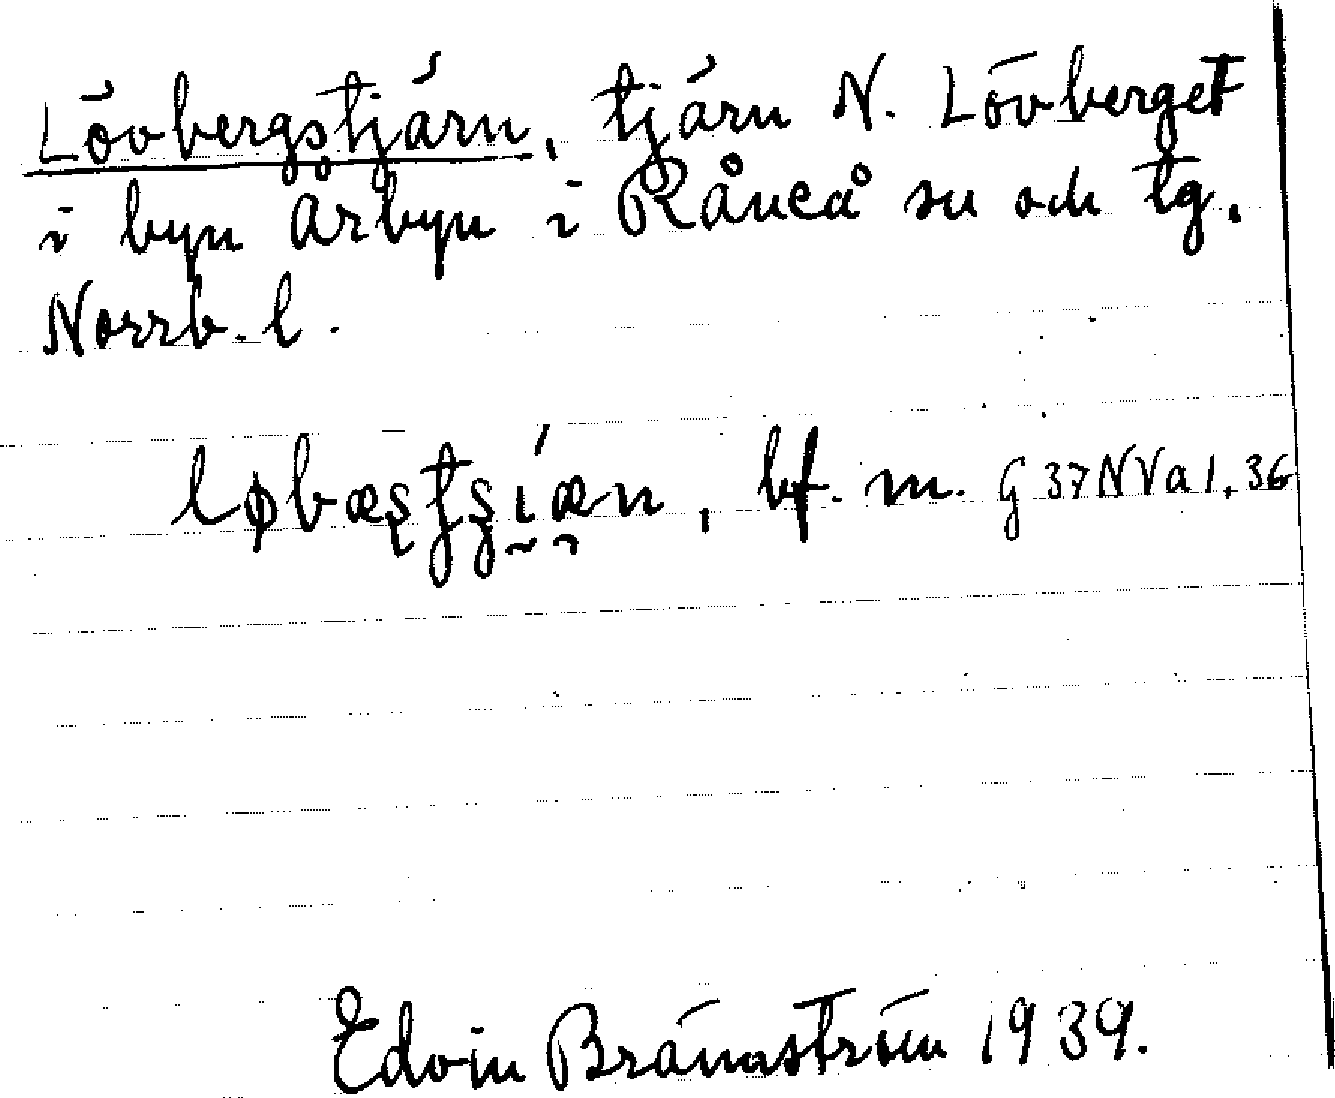 Lövbergstjärn, tjärn N. Lövberget
i byn Årbyn i Råneå sn och tg.
Norrb. l.
bf. m. G 37 N V a 1, 36
Edvin Brännström 1939.